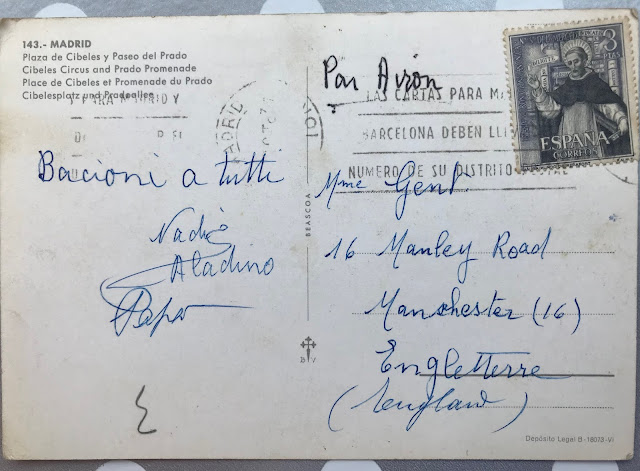 143.- MADRID
Plaza de Cibeles y Paseo del Prado
Cibeles Circus and Prado Promenade
Place de Cibeles et Promenade du Prado
Cibelesplatz und Pradoallee
Par Avion
MADRID
LAS CARTAS PARA
BARCELONA DEBEN
NUMERO DE SU DISTRITO
3
PTAS
ESPAÑA
CORREOS
Bacioni a tutti
Nadia
Aladino
Papa
BEASCOA
B V
Mme Gent.
16 Manley Road
Manchester (16)
Engleterre
(England)
Depósito Legal B-18073-VI